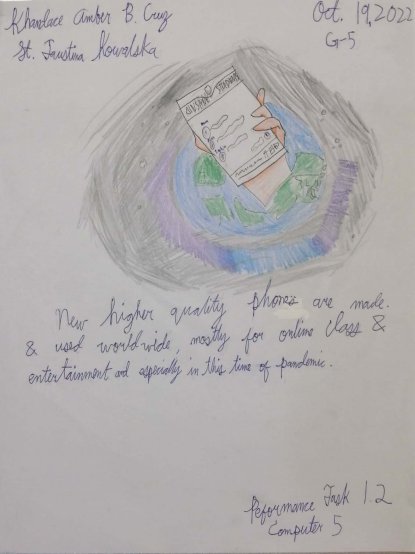 Khandace Amber B. Cruz
Oct. 19, 2022
St. Faustina Kowalska
G-5
New higher quality phones are made.
& used worldwide, mostly for online class &
entertainment and especially in this time of pandemic.
Peformance Task 1.2
Computer 5